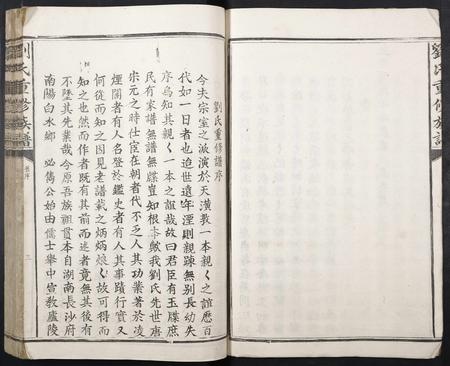 劉氏重修族譜
劉氏重修譜序
今夫宗室之派演於天潢敦一本親〻之誼歷百
代如一日者也迨世遠年湮則親踈無别長幼失
序烏知其親〻一本之誼哉故曰君臣有玉牒庶
民有家譜無譜無牒豈知根本歟我劉氏先世唐
宋元之時仕宦在朝者代不乏人其功業著於凌
煙閣者有人名登於鑑史者有人其事蹟行實又
何從而知之因見老譜載之炳炳烺〻故可得而
知之也然而作者既有其前而述者竟無其後有
不墜其先業哉今原吾族祖貫本自湖南長沙府
南陽白水鄉 必儁公始由儒士舉中宫教廬陵
劉氏重修族譜
序
三